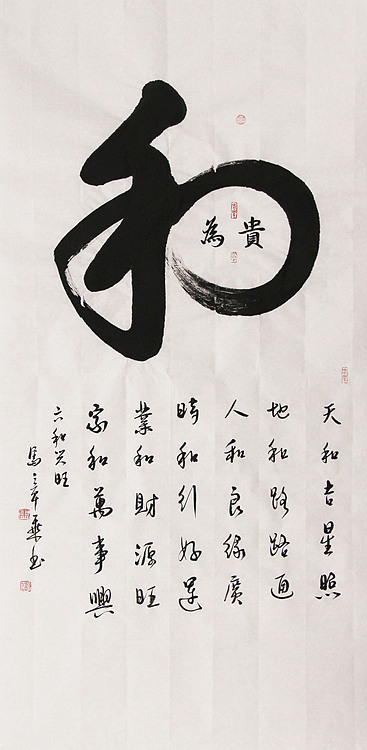 和
為貴
天和吉星照
地和路路通
人和良緣廣
時和引好運
業和財源旺
家和萬事興
六和兴旺
馬